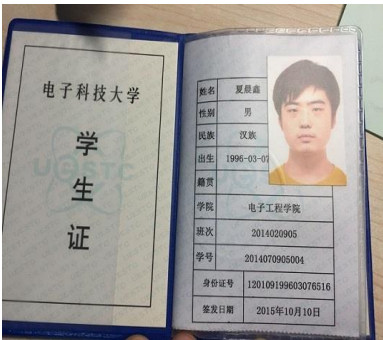 电子科技大学
学
生
证
UESTC
姓名 夏晨鑫
性别 男
民族 汉族
出生 1996-03-07
籍贯
学院 电子工程学院
班次 2014020905
学号 2014070905004
身份证号 120109199603076516
签发日期 2015年10月10日